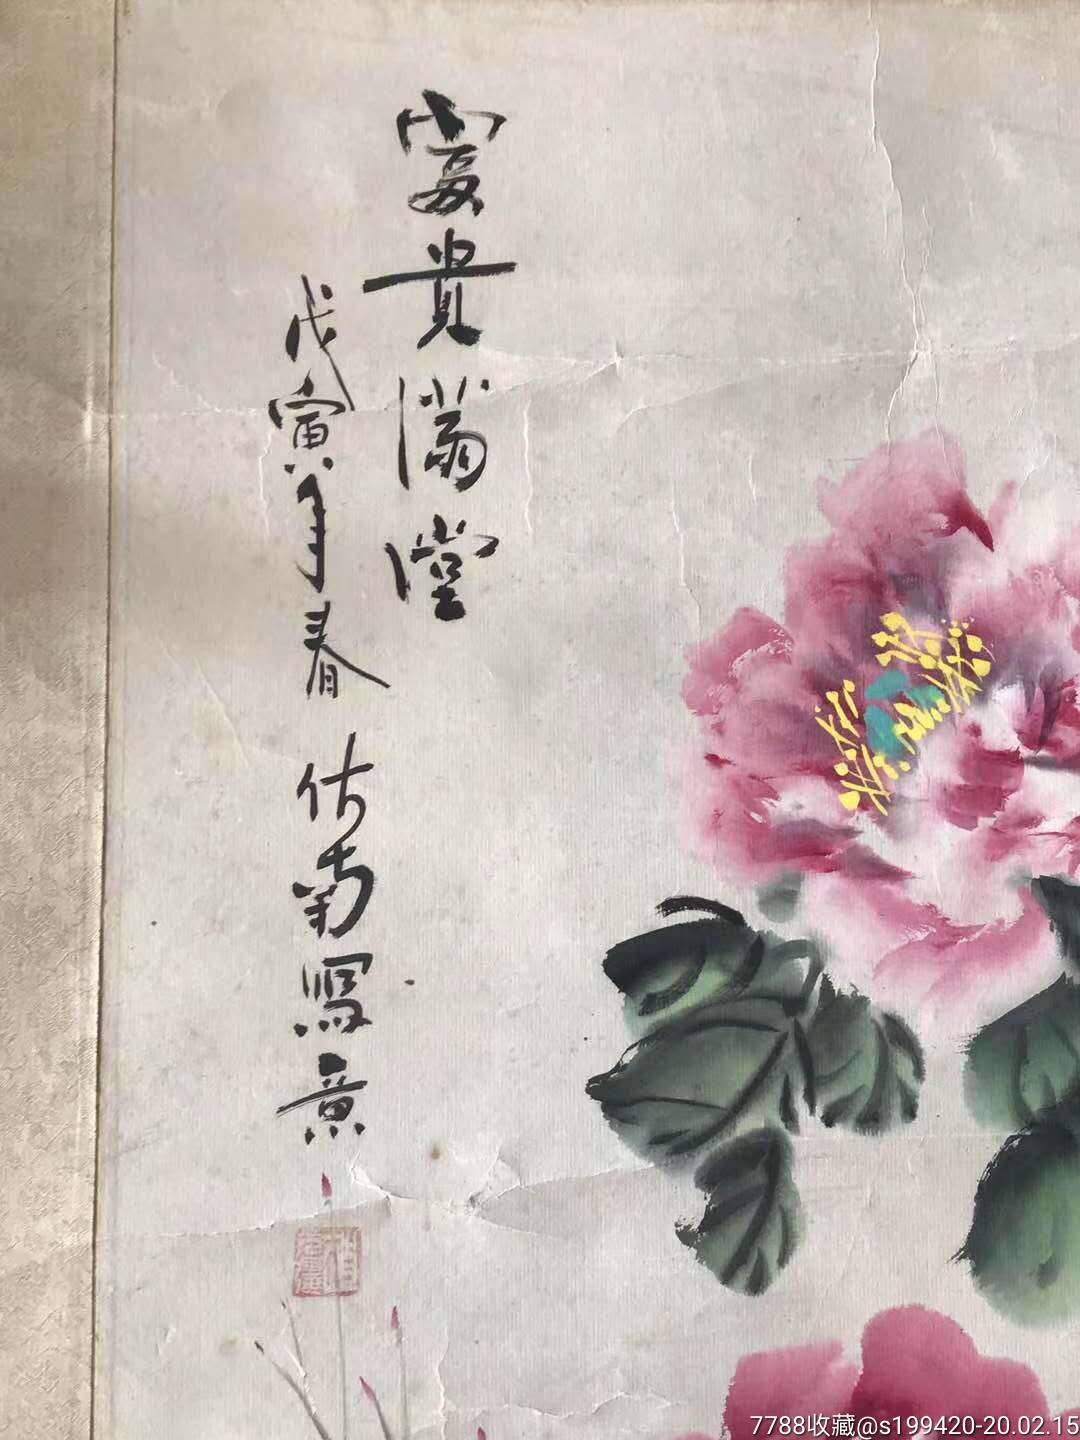 富贵满堂
戊寅年春 佐菊写意
7788收藏@s199420-20.02.15